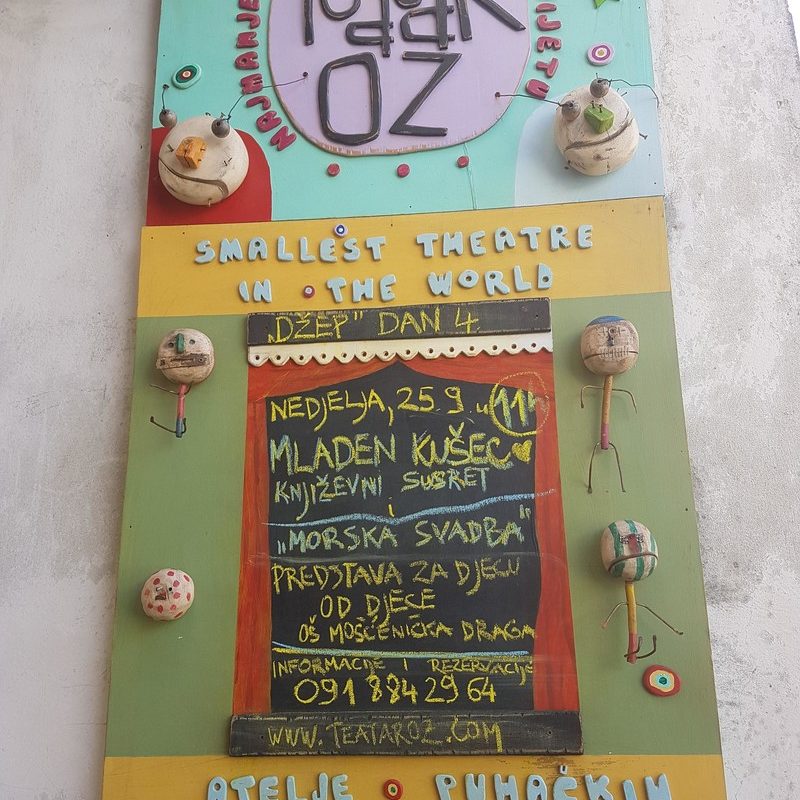 NAJMANJE
OZ
IJETU
SMALLEST THEATRE
IN THE WORLD
„DŽEP" DAN 4.
NEDJELJA, 25.9. u 11h
MLADEN KUŠEC
KNJIŽEVNI SUSRET
i
„MORSKA SVADBA"
PREDSTAVA ZA DJECU
OD DJECE
OŠ MOŠĆENIČKA DRAGA
INFORMACIJE I REZERVACIJE
091 884 29 64
WWW.TEATAROZ.COM
ATELJE PUHAČKIH